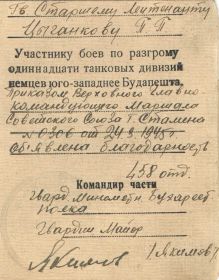 Гв. Старшему Лейтенанту
Цыганкову П П
Участнику боев по разгрому
одиннадцати танковых дивизий
немцев юго-западнее Будапешта,
Приказом Верховного Главно-
командующего Маршала
Советского Союза т. Сталина
№ 0306 от 24.3.1945г
объявлена благодарность
458 отд.
Командир части
Гвард Минометн Бухарест
Полка
Гвардии Майор